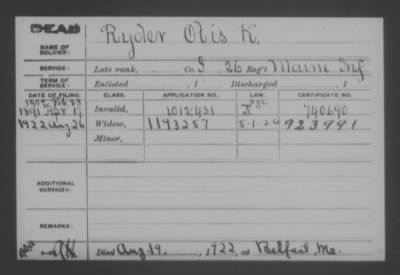 DEAD
NAME OF SOLDIER: Ryder Otis K.
SERVICE: Late rank, Co. I, 26 Reg't Maine Inf
TERM OF SERVICE: Enlisted , 1 Discharged , 1
DATE OF FILING. CLASS. APPLICATION NO. LAW. CERTIFICATE NO.
1891 Apr 17 Invalid, 1012,431 740690
1922 Aug 26 Widow, 1193257 5-1-20 923991
Minor,
ADDITIONAL SERVICES:
REMARKS:
Died Aug. 19, 1922, at Belfast, Me.